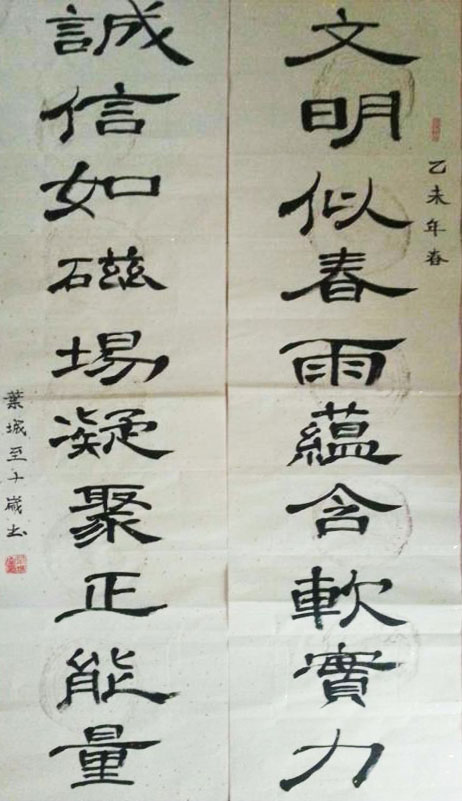 乙未年春
文明似春雨蘊含軟實力
誠信如磁場凝聚正能量
葉城至